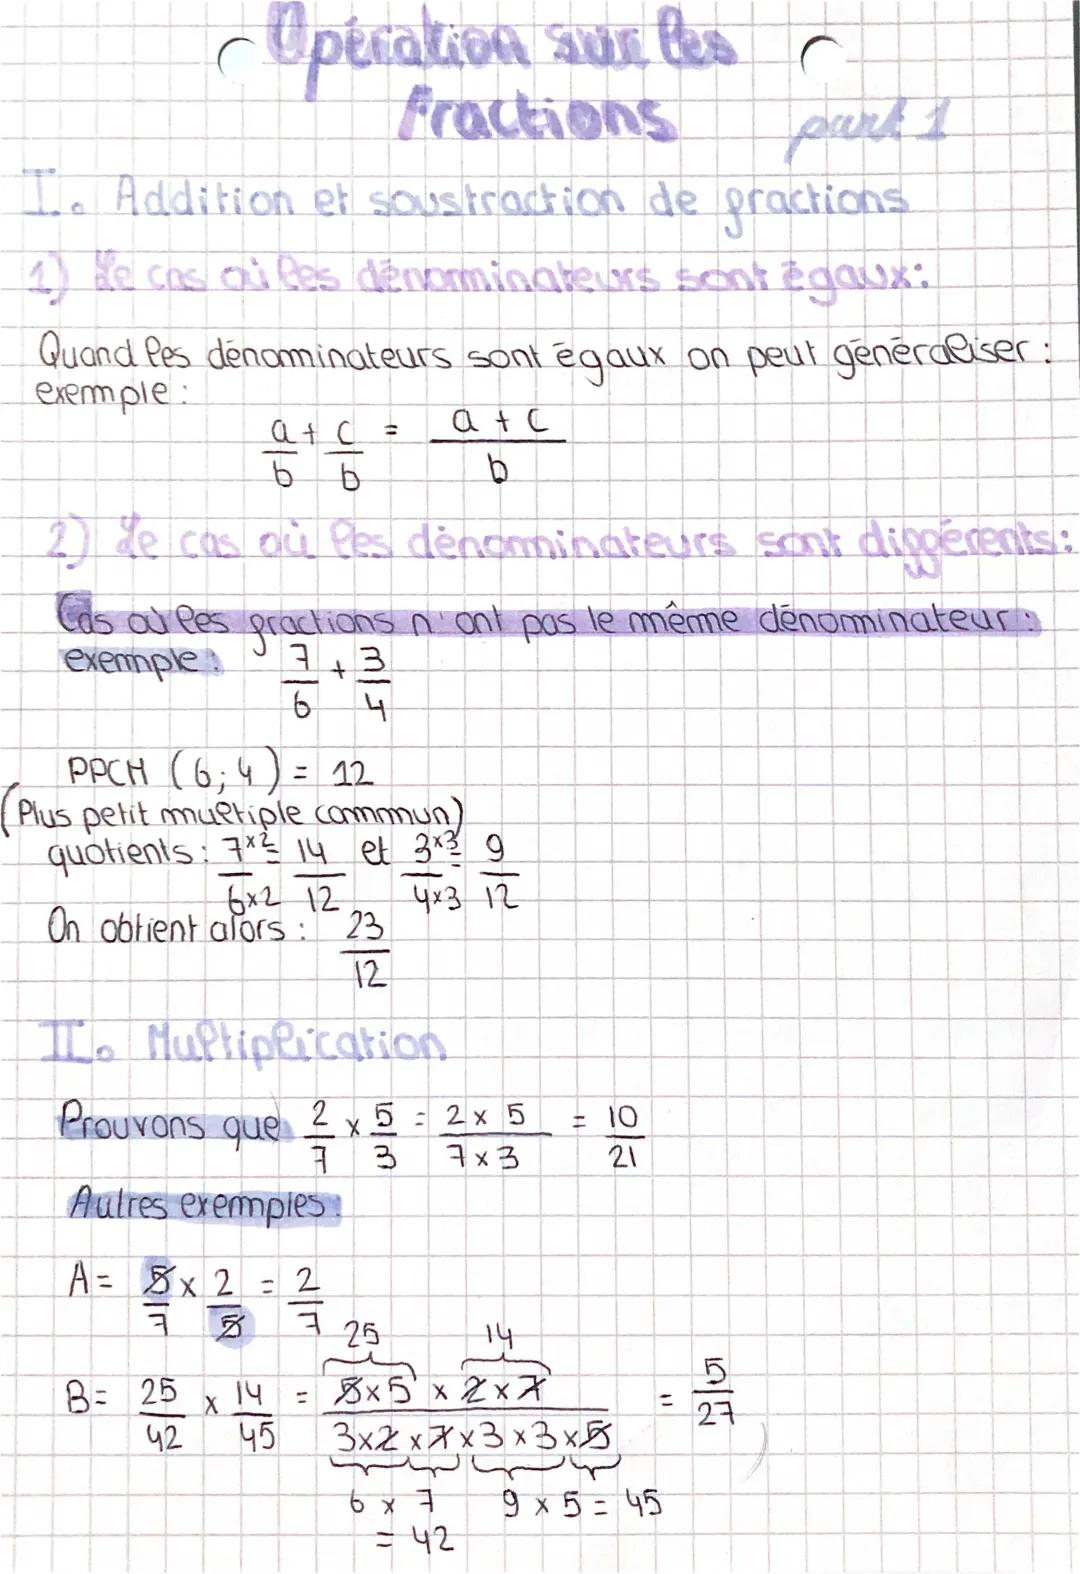 Opération sur les
fractions part 1
I. Addition et soustraction de fractions
1) Le cas où les dénominateurs sont égaux:
Quand les dénominateurs sont égaux on peut généraliser :
exemple :
a/b + c/b = (a + c)/b
2) Le cas où les dénominateurs sont différents:
Cas où les fractions n'ont pas le même dénominateur :
exemple : 7/6 + 3/4
PPCM (6; 4) = 12
(Plus petit multiple commun)
quotients : 7×2/6×2 = 14/12 et 3×3/4×3 = 9/12
On obtient alors : 23/12
II. Multiplication
Prouvons que 2/7 × 5/3 = 2 × 5/7 × 3 = 10/21
Autres exemples :
A = 5/7 × 2/5 = 2/7
25 14
B = 25/42 × 14/45 = 5×5 × 2×7/3×2×7×3×3×5 = 5/27
6 × 7 9 × 5 = 45
= 42